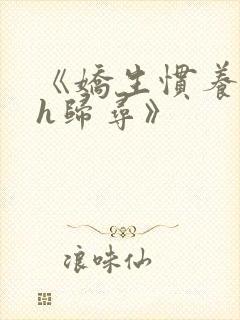 《嬌生慣養
h歸尋》
浪味仙